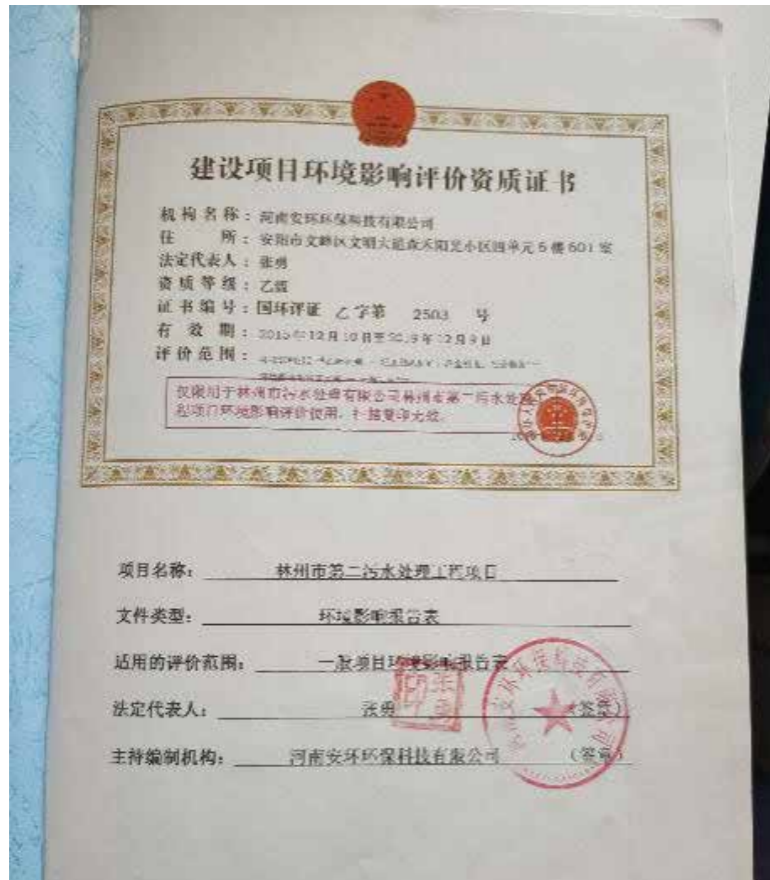 建设项目环境影响评价资质证书
机构名称：河南安环环保科技有限公司
住 所：安阳市文峰区文明大道森禾阳光小区四单元6楼601室
法定代表人：张勇
资质等级：乙级
证书编号：国环评证 乙字第 2503 号
有效期：2015年12月10日至2019年12月9日
评价范围：
仅限用于林州市污水处理有限公司林州市第二污水处理
程项目环境影响评价使用，扫描复印无效。
项目名称：林州市第二污水处理工程项目
文件类型：环境影响报告表
适用的评价范围：一般项目环境影响报告表
法定代表人：张勇 （签章）
主持编制机构：河南安环环保科技有限公司 （签章）